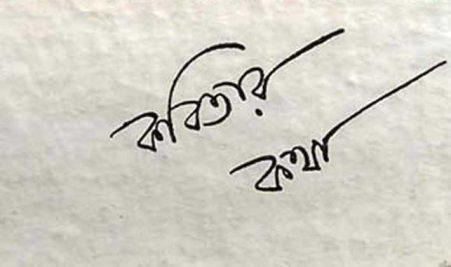 কবিতার
কথা